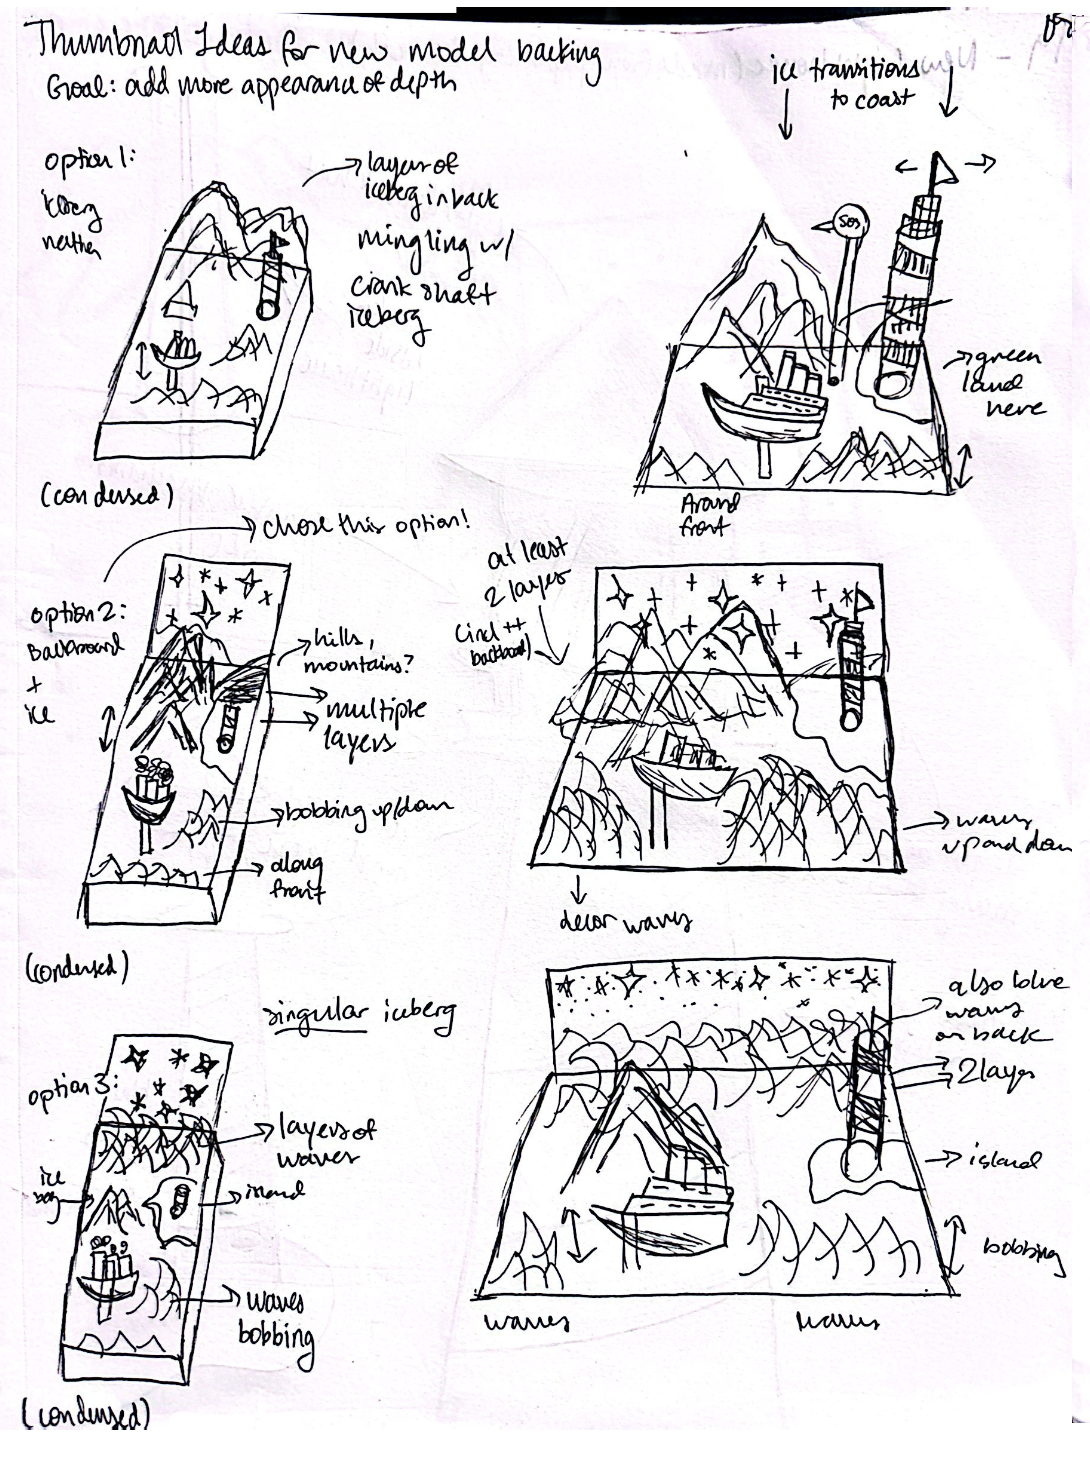 Thumbnail Ideas for new model backing
Goal: add more appearance of depth
option 1:
layers of
iceberg in back
mingling w/
crank shaft
iceberg
(condensed)
ice transitions
to coast
SOS
green
land
here
Around
front
chose this option!
option 2:
Backboard
+
ice
hills,
mountains?
multiple
layers
bobbing up/down
along
front
(condensed)
at least
2 layers
backboard)
waves
up and down
decor waves
singular iceberg
option 3:
layers of
waves
ice
berg
island
waves
bobbing
(condensed)
also blue
waves
on back
2 layers
island
bobbing
waves
waves